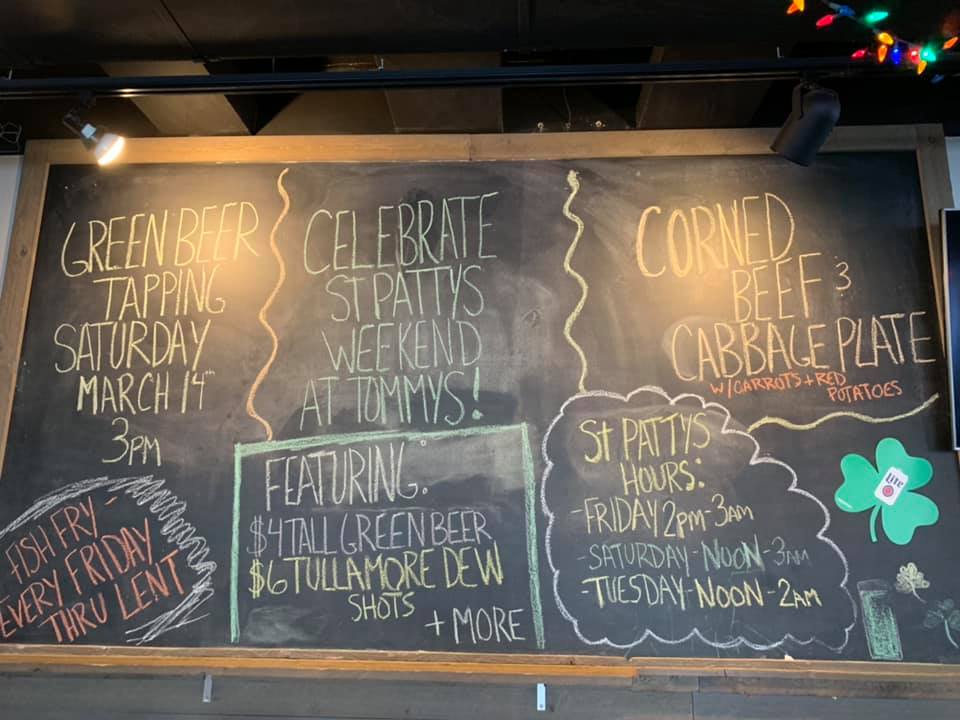 GREEN BEER
TAPPING
SATURDAY
MARCH 14th
3PM
FISH FRY -
EVERY FRIDAY
THRU LENT
CELEBRATE
ST PATTYS
WEEKEND
AT TOMMYS!
FEATURING:
$4 TALL GREEN BEER
$6 TULLAMORE DEW
SHOTS
+ MORE
CORNED
BEEF &
CABBAGE PLATE
W/CARROTS + RED
POTATOES
St PATTYS
HOURS:
-FRIDAY 2PM-3AM
-SATURDAY-NOON-3AM
-TUESDAY-NOON-2AM
Lite